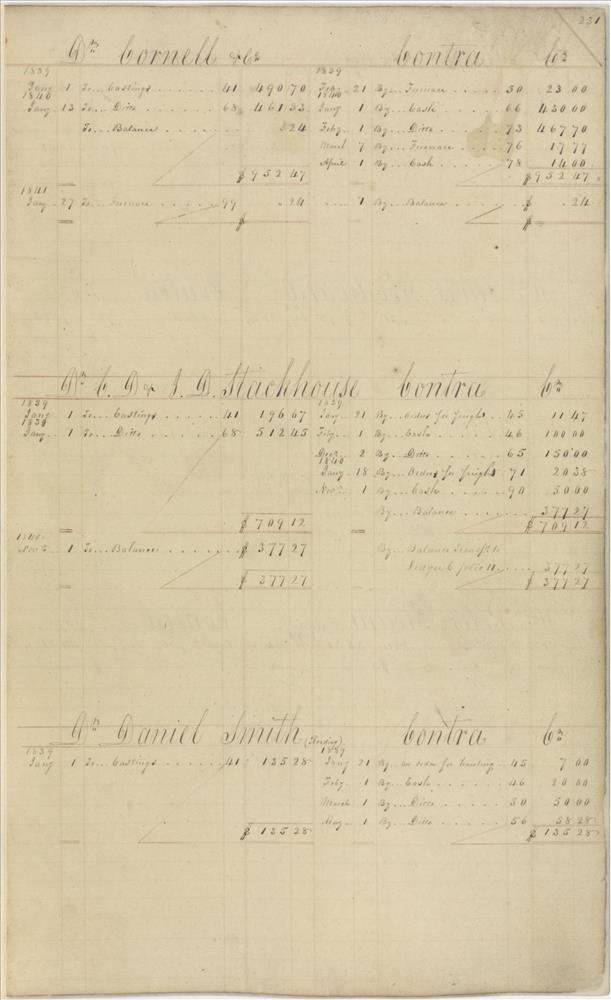 231
Dr. Cornell & Co Contra Cr
1839 1839
Jany 1 To Castings 41 490 70 Feby 21 By Furnace 50 23 00
1840 1840
Jany 13 To Ditto 68 461 53 Jany 1 By Cash 66 430 00
To Balance 24 Feby 1 By Ditto 73 467 70
March 7 By Furnace 76 17 77
April 1 By Cash 78 14 00
$ 952 47 $ 952 47
1841
Jany 27 To Furnace 99 .24 1 By Balance $ .24
$ $
Dr. C. D & J. D. Stackhouse Contra Cr
1839 1839
Jany 1 To Castings 41 196 67 Jany 21 By Order for freight 45 11 47
Jany 1 To Ditto 68 512 45 Feby 1 By Cash 46 100 00
Decr 2 By Ditto 65 150 00
1840
Jany 18 By Orders for freight 71 20 38
Novr 1 By Cash 90 50 00
By Balance 377 27
$ 709 12 $ 709 12
1840
Novr 1 To Balance $ 377 27 By Balance Transf to
Ledger C folio 377 27
$ 377 27 $ 377 27
Dr. Daniel Smith (Reading) Contra Cr
1839 1839
Jany 1 To Castings 41 135 28 Jany 21 By an order for hauling 45 7 00
Feby 1 By Cash 46 20 00
March 1 By Ditto 50 50 00
May 1 By Ditto 56 58 28
$ 135 28 $ 135 28